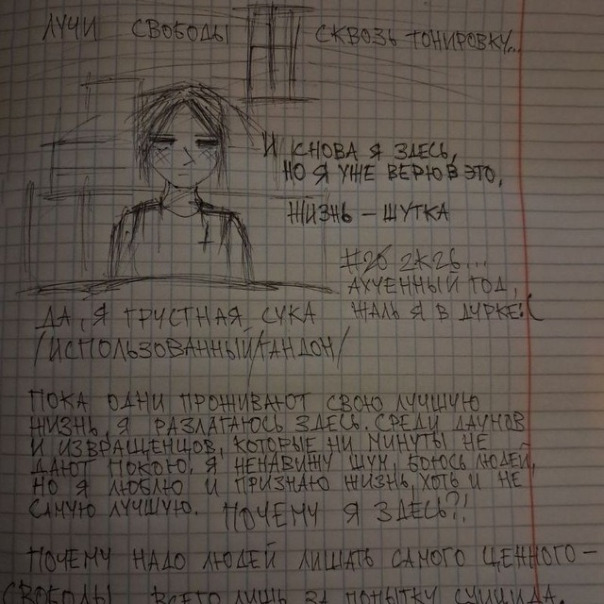 ЛУЧИ СВОБОДЫ СКВОЗЬ ТОНИРОВКУ...
И СНОВА Я ЗДЕСЬ,
НО Я УЖЕ ВЕРЮ В ЭТО,
ЖИЗНЬ – ШУТКА
2К26...
АХУЕННЫЙ ГОД,
ЖАЛЬ Я В ДУРКЕ:(
ДА, Я ГРУСТНАЯ СУКА
/ИСПОЛЬЗОВАННЫЙ ГАНДОН/
ПОКА ОДНИ ПРОЖИВАЮТ СВОЮ ЛУЧШУЮ
ЖИЗНЬ, Я РАЗЛАГАЮСЬ ЗДЕСЬ. СРЕДИ ДАУНОВ
И ИЗВРАЩЕНЦОВ, КОТОРЫЕ НИ МИНУТЫ НЕ
ДАЮТ ПОКОЮ. Я НЕНАВИЖУ ШУМ, БОЮСЬ ЛЮДЕЙ,
НО Я ЛЮБЛЮ И ПРИЗНАЮ ЖИЗНЬ, ХОТЬ И НЕ
САМУЮ ЛУЧШУЮ. ПОЧЕМУ Я ЗДЕСЬ?!
ПОЧЕМУ НАДО ЛЮДЕЙ ЛИШАТЬ САМОГО ЦЕННОГО –
СВОБОДЫ ВСЕГО ЛИШЬ ЗА ПОПЫТКУ СУИЦИДА.